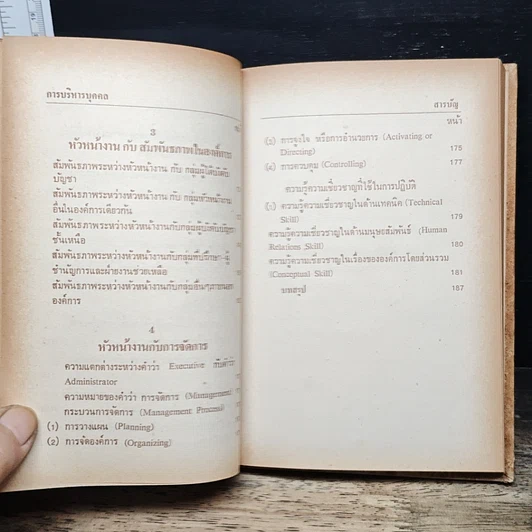 การบริหารบุคคล
3
หัวหน้างาน กับ สัมพันธภาพในองค์การ
สัมพันธภาพระหว่างหัวหน้างาน กับ กลุ่มผู้ใต้บังคับ
บัญชา
สัมพันธภาพระหว่างหัวหน้างาน กับ กลุ่มหัวหน้างาน
อื่นในองค์การเดียวกัน
สัมพันธภาพระหว่างหัวหน้างาน กับผู้บังคับบัญชา
ชั้นเหนือ
สัมพันธภาพระหว่างหัวหน้างานกับกลุ่มที่ปรึกษา-ผู้
ชำนาญการและฝ่ายงานช่วยเหลือ
สัมพันธภาพระหว่างหัวหน้างานกับกลุ่มอื่นๆภายนอก
องค์การ
4
หัวหน้างานกับการจัดการ
ความแตกต่างระหว่างคำว่า Executive กับคำว่า
Administrator
ความหมายของคำว่า การจัดการ (Management)
กระบวนการจัดการ (Management Process)
(๑) การวางแผน (Planning)
(๒) การจัดองค์การ (Organizing)
สารบัญ
หน้า
(๓) การจูงใจ หรือการอำนวยการ (Activating or
Directing) 175
(๔) การควบคุม (Controlling) 177
ความรู้ความเชี่ยวชาญที่ใช้ในการปฏิบัติ
(๑) ความรู้ความเชี่ยวชาญในด้านเทคนิค (Technical
Skill) 179
ความรู้ความเชี่ยวชาญในด้านมนุษยสัมพันธ์ (Human
Relations Skill) 180
ความรู้ความเชี่ยวชาญในเรื่องขององค์การโดยส่วนรวม
(Conceptual Skill) 181
บทสรุป 187